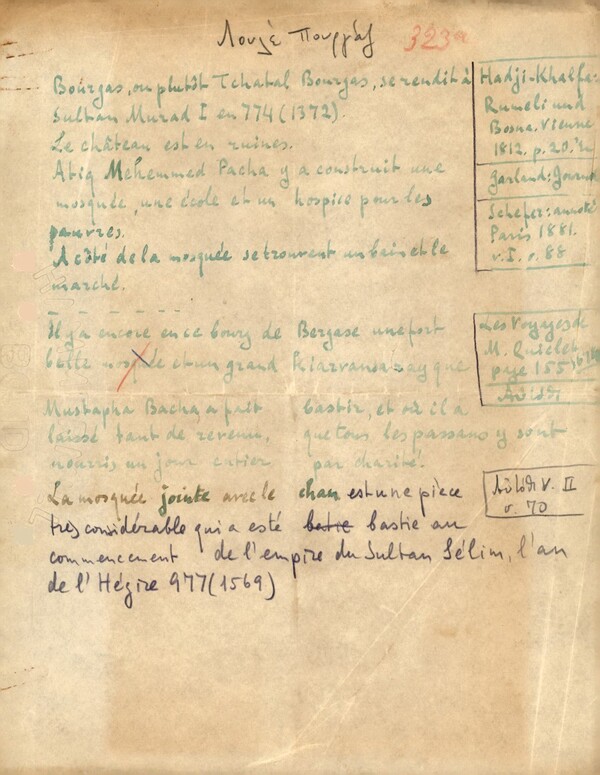 Λουλέ Πουργάζ 323a
Bourgas, ou plutôt Tchatal Bourgas, se rendit à
Sultan Murad I en 774 (1372).
Le château est en ruines.
Atiq Mehemmed Pacha y a construit une
mosquée, une école et un hospice pour les
pauvres.
A côté de la mosquée se trouvent un bain et le
marché.
Hadji-Khalfa:
Rumeli und
Bosna. Vienne
1812. p. 20.
Garland: Journ
Schefer: annoté
Paris 1881.
v. I. σ. 88
Il y a encore en ce bourg de Bergase une fort
belle mosquée et un grand Kiarvansaray que
Mustapha Bacha, a fait bastir, et où il a
laissé tant de revenu, que tous les passans y sont
nourris un jour entier par charité.
Les Voyages de
M. Quiclet
page 155
Αὐτόθι
La mosquée jointe avec le chan est une pièce
très considérable qui a esté bastie au
commencement de l'empire du Sultan Sélim, l'an
de l'Hégire 977 (1569)
Αὐτόθι v. II
σ. 70